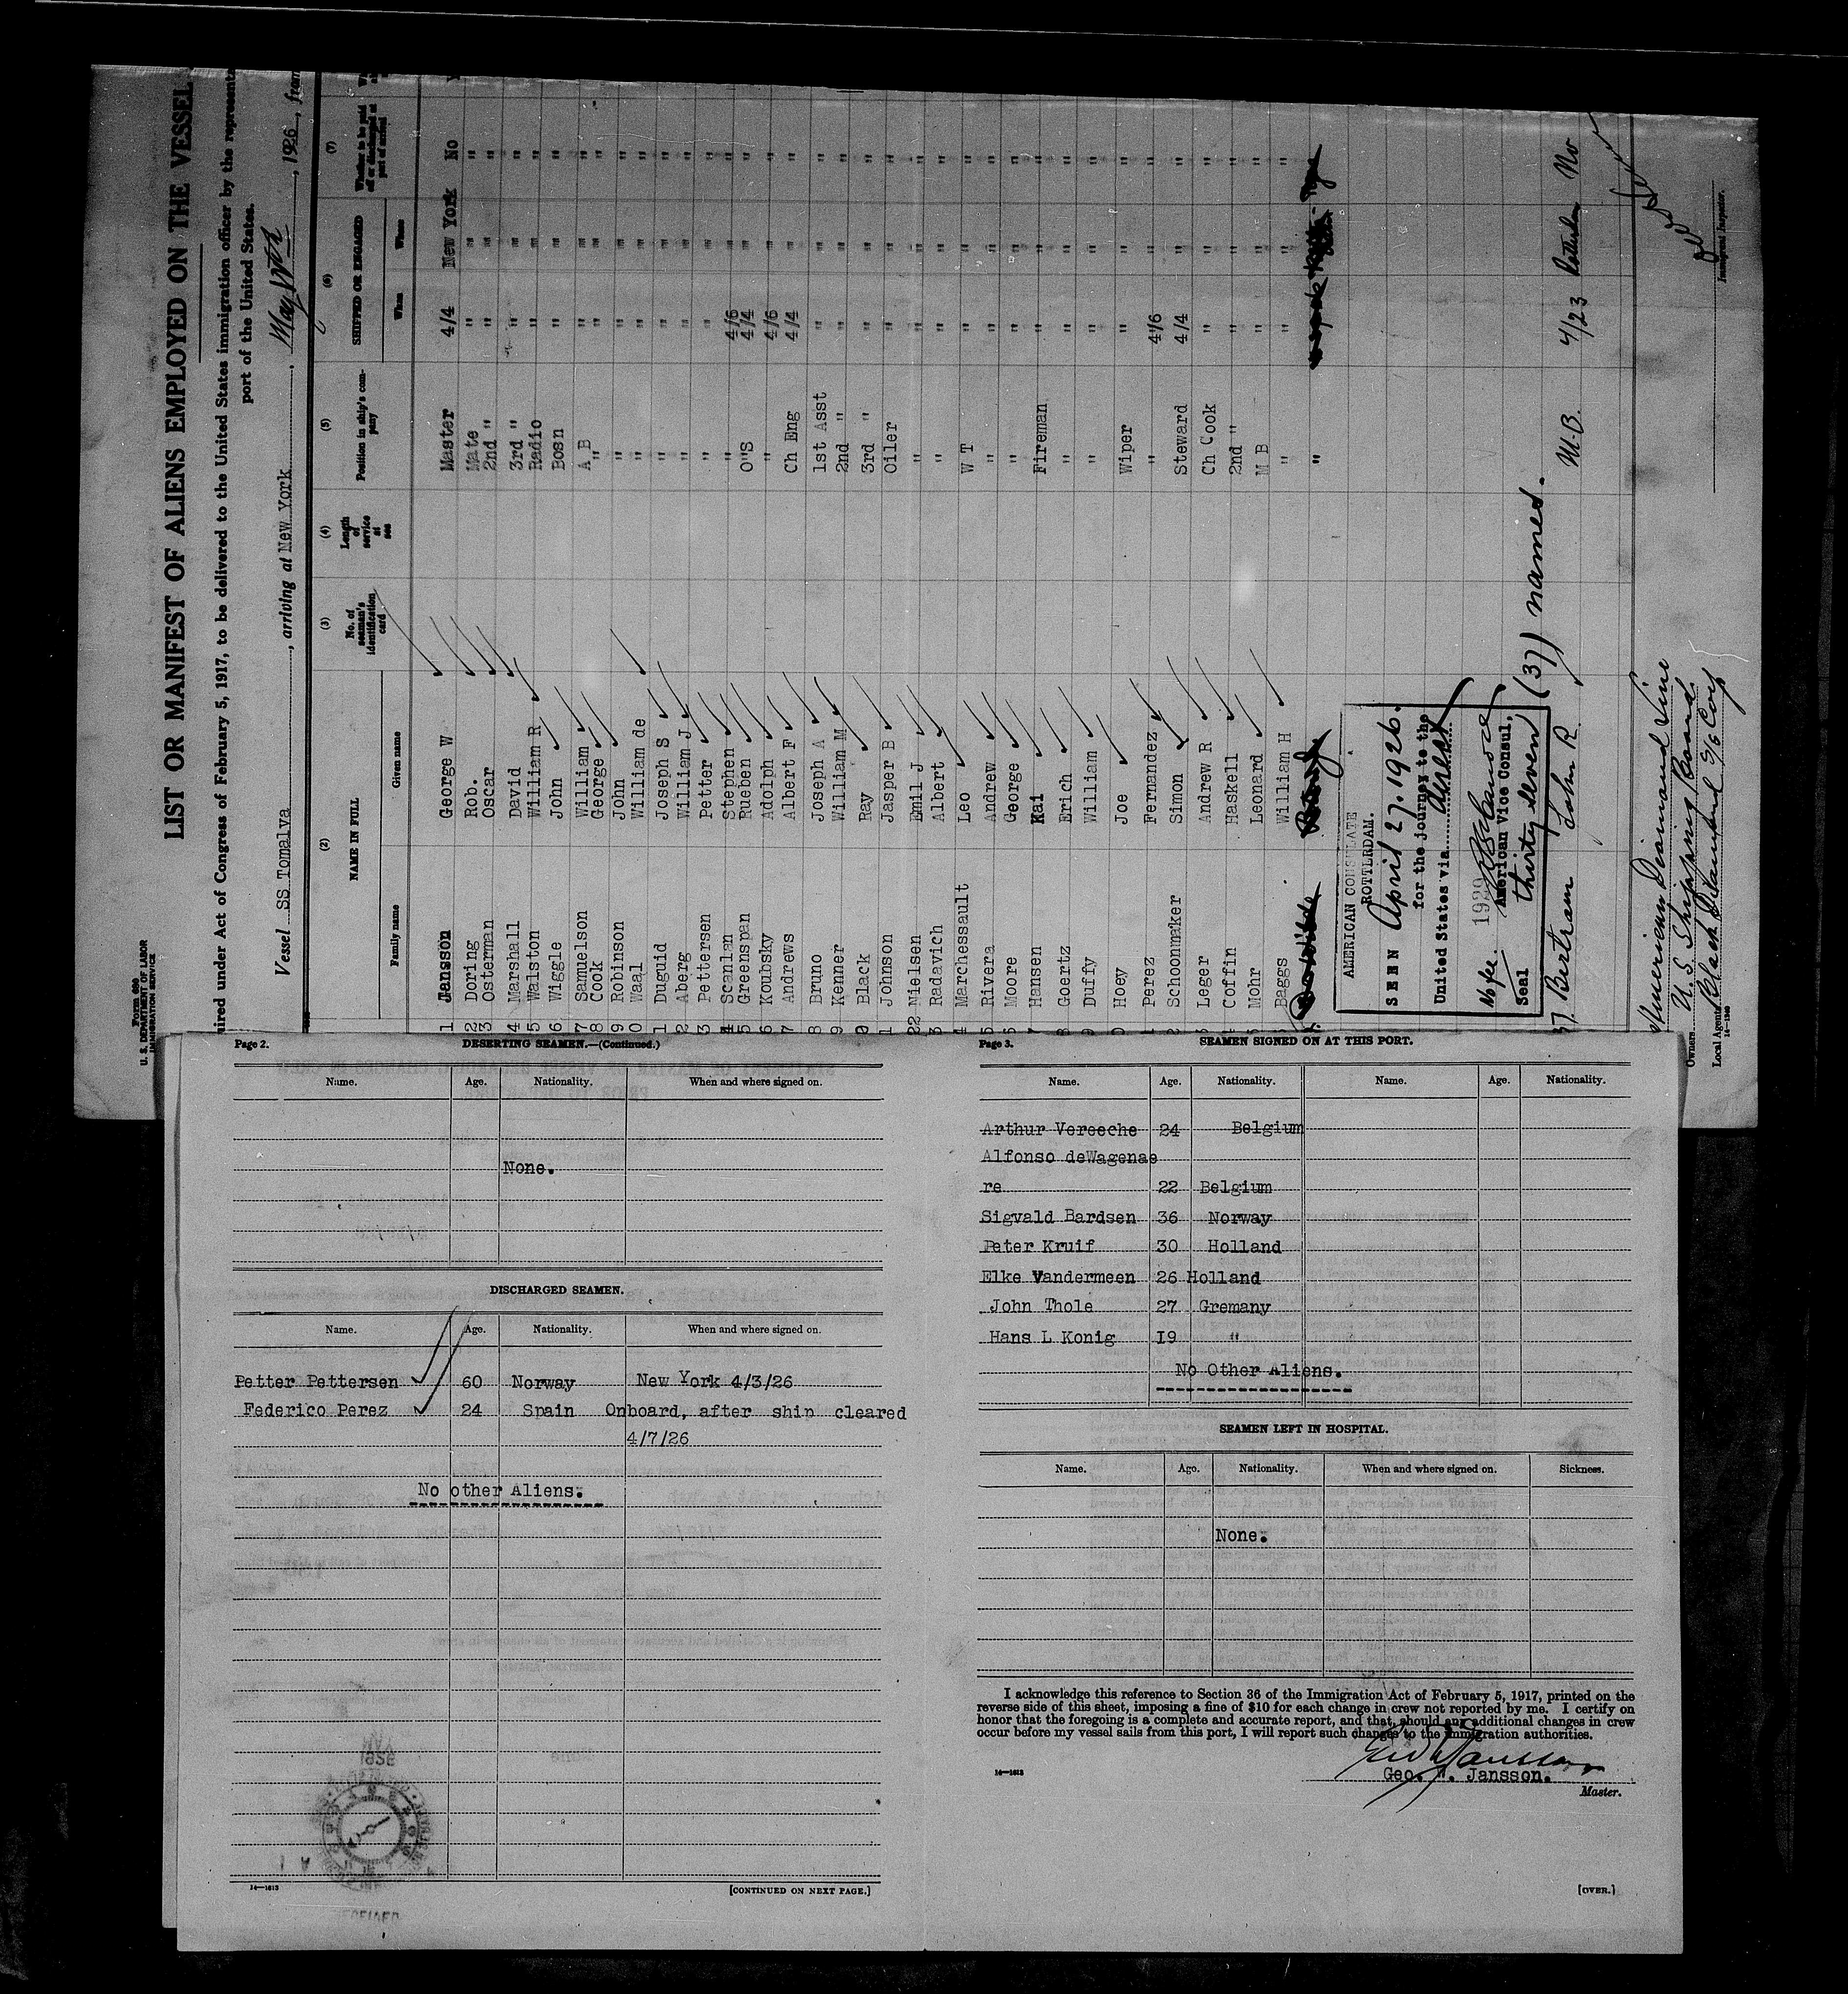 FORM 680
U. S. DEPARTMENT OF LABOR
IMMIGRATION SERVICE
LIST OR MANIFEST OF ALIENS EMPLOYED ON THE VESSEL
uired under Act of Congress of February 5, 1917, to be delivered to the United States immigration officer by the representa
port of the United States.
Vessel SS Tomalva, arriving at New York, May, 1926, from
(2) (3) (4) (5) (6) (7)
NAME IN FULL No. of seaman's identification card Length of service at sea Position in ship's company SHIPPED OR ENGAGED Whether to be paid off or discharged at port of arrival
Family name Given name When Where
1 Jansson George W Master 4/4 New York No
2 Doring Rob. Mate " " "
3 Osterman Oscar 2nd " " " "
4 Marshall David 3rd " " " "
5 Walston William R Radio " " "
6 Wiggle John Bosn " " "
7 Samuelson William A B " " "
8 Cook George " " " "
9 Robinson John " " " "
0 Waal William de " " " "
1 Duguid Joseph S " " " "
2 Aberg William J " " " "
3 Pettersen Petter " " " "
4 Scanlan Stephen " 4/6 " "
5 Greenspan Rueben O"S 4/4 " "
6 Koubsky Adolph " 4/6 " "
7 Andrews Albert F Ch Eng 4/4 " "
8 Bruno Joseph A 1st Asst " " "
9 Kenner William M 2nd " " " "
0 Black Ray 3rd " " " "
1 Johnson Jasper B Oiler " " "
22 Nielsen Emil J " " " "
3 Radavich Albert " " " "
4 Marchessault Leo W T " " "
5 Rivera Andrew " " " "
6 Moore George " " " "
7 Hansen Kai Fireman " " "
8 Goertz Erich " " " "
9 Duffy William " " " "
0 Hoey Joe Wiper " " "
1 Perez Fernandez " 4/6 " "
2 Schoonmaker Simon Steward 4/4 " "
3 Leger Andrew R Ch Cook " " "
4 Coffin Haskell 2nd " " " "
5 Mohr Leonard M B " " "
Baggs William H " " " "
AMERICAN CONSULATE
ROTTERDAM.
SEEN April 27. 1926.
for the journey to the
United States via direct
1929
No fee. American Vice Consul,
Seal thirty seven (37) names.
37. Bertram John R. M.B. 4/23 Rotterdam No
American Diamond Line
Owners U.S. Shipping Board
Local Agents Black Diamond S/S Corp
14—1240
Immigrant Inspector.
Page 2. DESERTING SEAMEN.—(Continued.)
Name. Age. Nationality. When and where signed on.
None.
DISCHARGED SEAMEN.
Name. Age. Nationality. When and where signed on.
Petter Pettersen 60 Norway New York 4/3/26
Federico Perez 24 Spain Onboard, after ship cleared
4/7/26
No other Aliens.
14—1613
[CONTINUED ON NEXT PAGE.]
Page 3. SEAMEN SIGNED ON AT THIS PORT.
Name. Age. Nationality. Name. Age. Nationality.
Arthur Vereeche 24 Belgium
Alfonso deWagenae
re 22 Belgium
Sigvald Bardsen 36 Norway
Peter Kruif 30 Holland
Elke Vandermeen 26 Holland
John Thole 27 Gremany
Hans L Konig I9 "
No Other Aliens.
SEAMEN LEFT IN HOSPITAL.
Name. Age. Nationality. When and where signed on. Sickness.
None.
I acknowledge this reference to Section 36 of the Immigration Act of February 5, 1917, printed on the
reverse side of this sheet, imposing a fine of $10 for each change in crew not reported by me. I certify on
honor that the foregoing is a complete and accurate report, and that, should any additional changes in crew
occur before my vessel sails from this port, I will report such changes to the immigration authorities.
Geo W Jansson
14—1613
Geo. W. Jansson.
Master.
[OVER.]